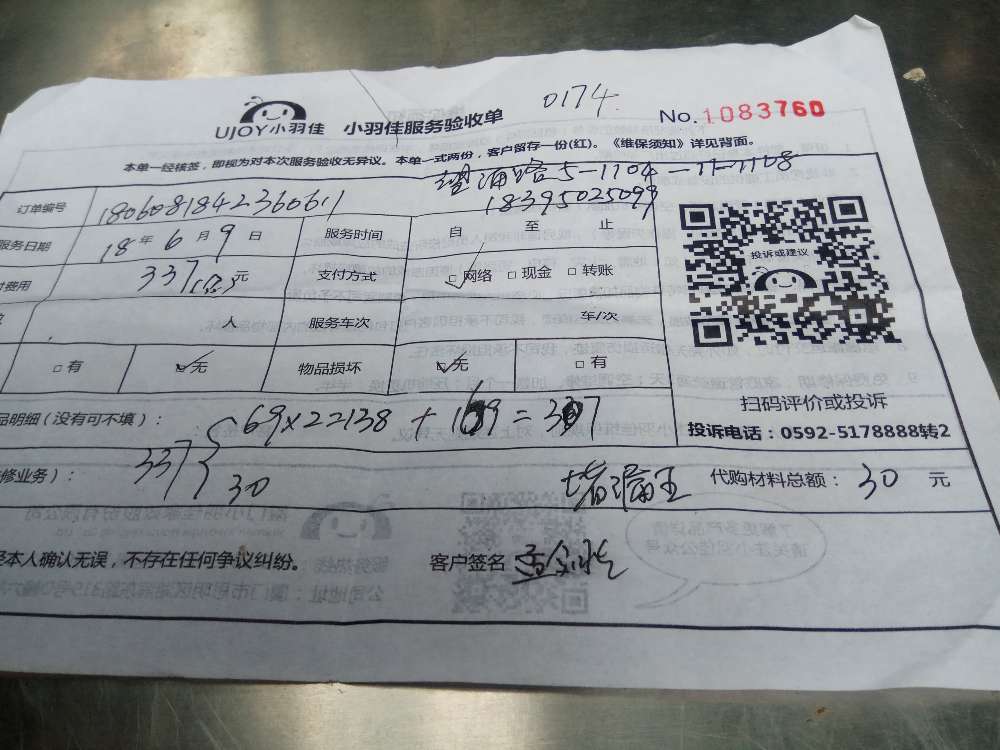 UJOY小羽佳 小羽佳服务验收单 0174 No.1083760
本单一经核签，即视为对本次服务验收无异议。本单一式两份，客户留存一份(红)。《维保须知》详见背面。
5-1704
18395025099
订单编号 180608184236061
服务日期 18年6月9日 服务时间 自 至 止
费用 337 元 支付方式 网络 现金 转账
人 服务车次 车/次
有 无 物品损坏 无 有
投诉或建议
扫码评价或投诉
投诉电话：0592-5178888转2
品明细(没有可不填)： 69×2=138 + 169 = 307
修业务)： 337 { 30 堵漏王 代购材料总额：30 元
本人确认无误，不存在任何争议纠纷。 客户签名